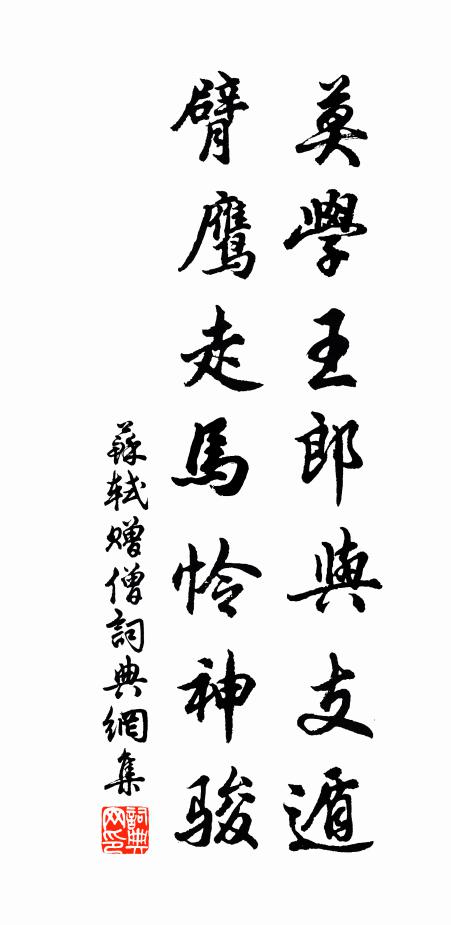 莫學王郎與支遁
臂鷹走馬怜神骏
蘇軾赠僧詞典網集
詞典网印